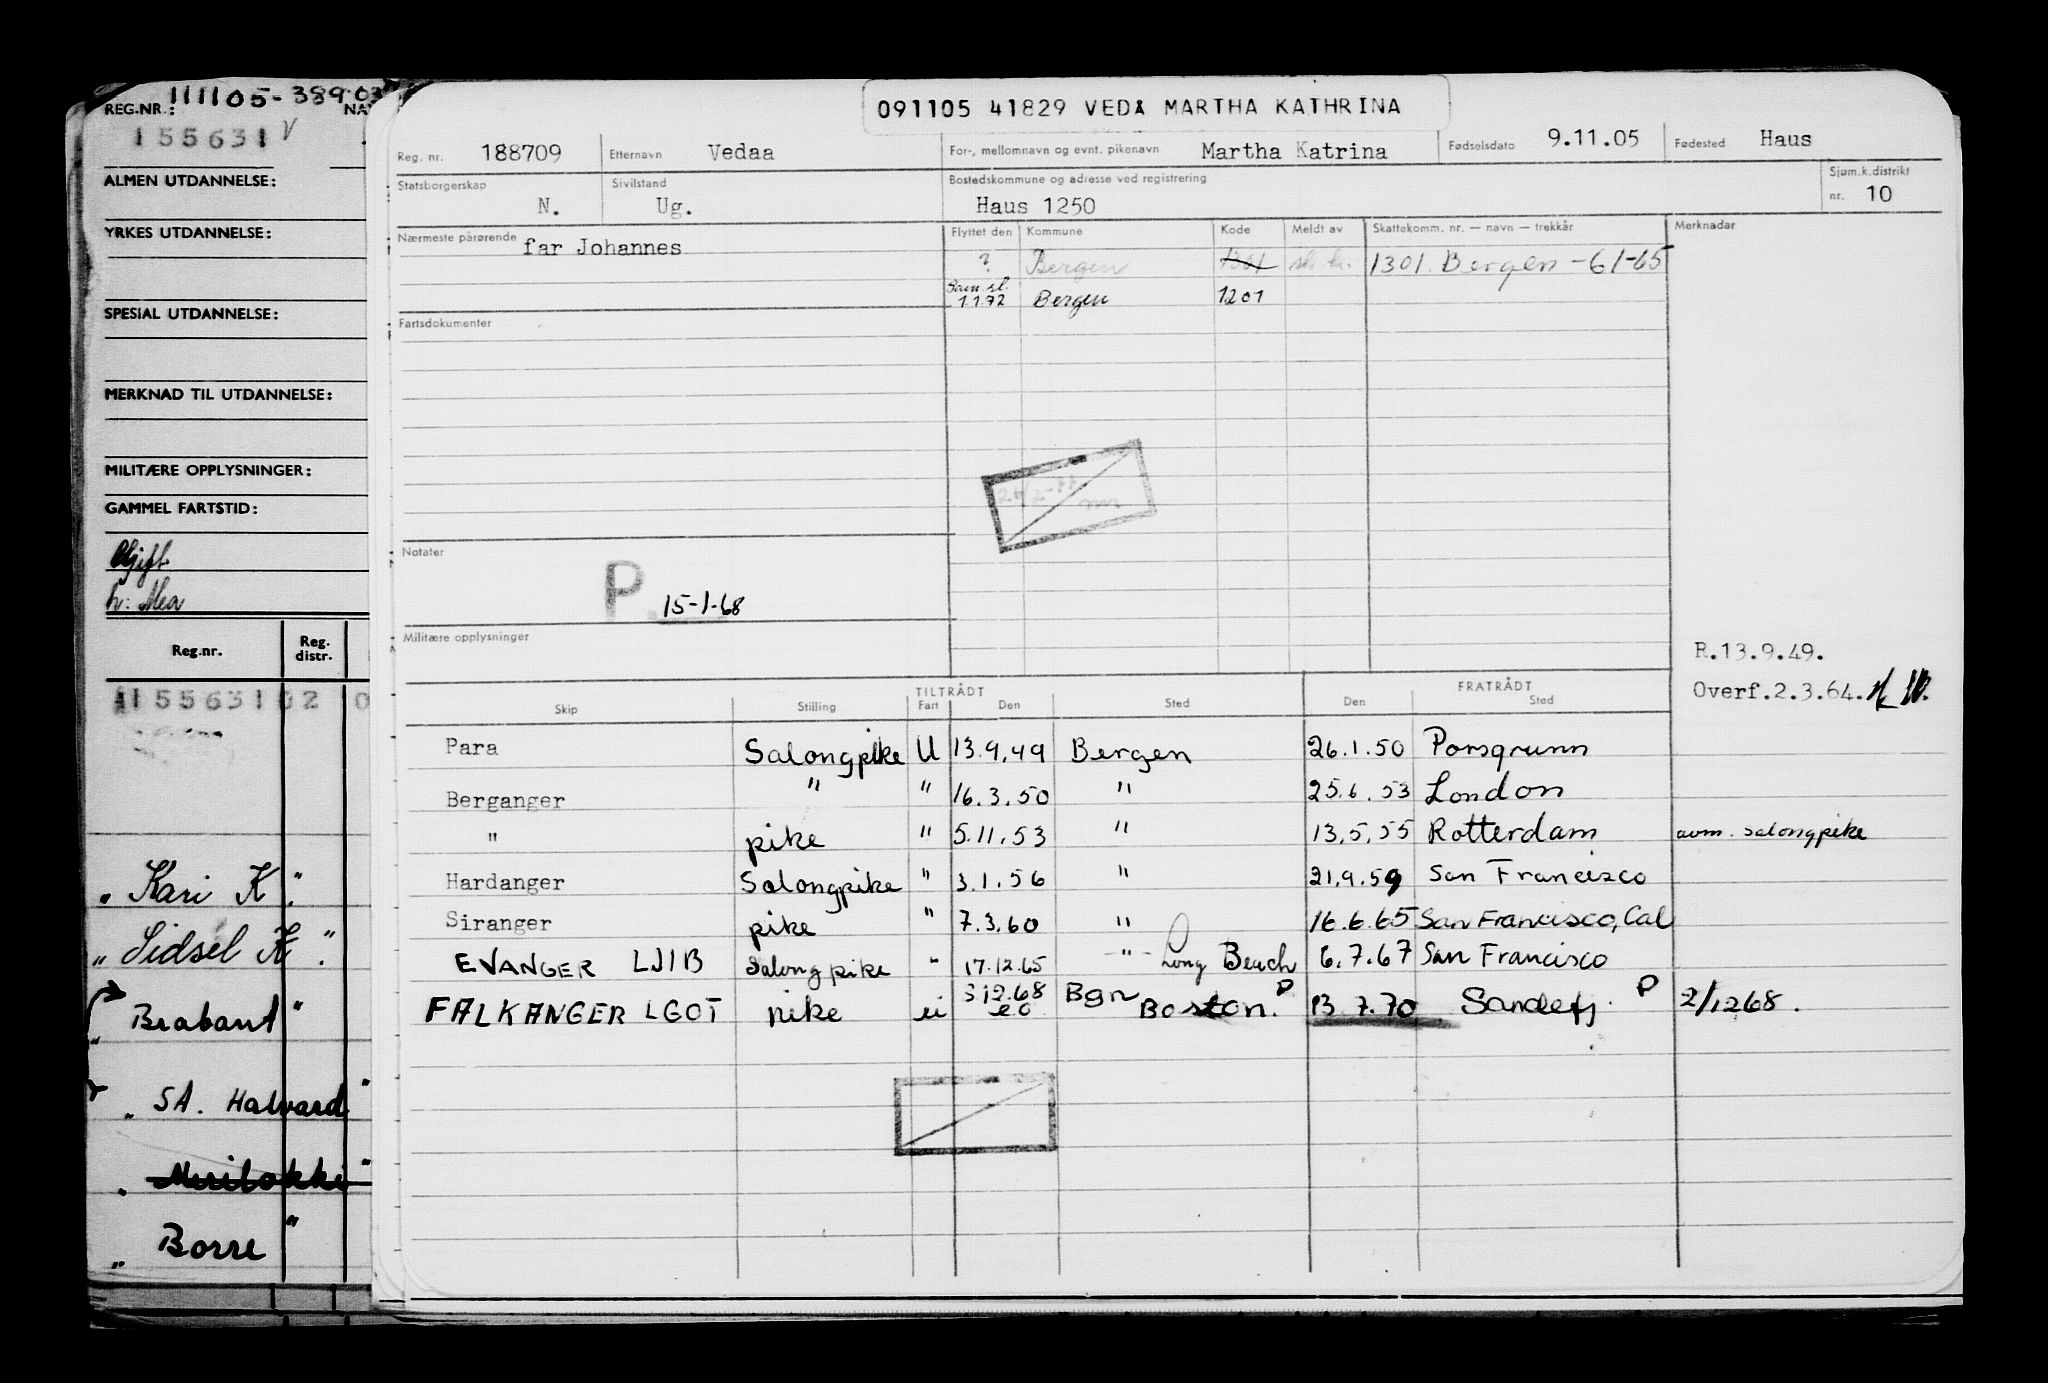 REG.NR.: 111105-389
155631 V
ALMEN UTDANNELSE:
YRKES UTDANNELSE:
SPESIAL UTDANNELSE:
MERKNAD TIL UTDANNELSE:
MILITÆRE OPPLYSNINGER:
GAMMEL FARTSTID:
Gift.
h: Mea
Reg.nr. Reg. distr.
155631 02 0
" Kari K "
" Sidsel K "
" Brabant "
" SA. Halvard "
" Borre "
091105 41829 VEDÅ MARTHA KATHRINA
Reg. nr. 188709 Etternavn Vedaa For-, mellomnavn og evnt. pikenavn Martha Katrina Fødselsdato 9.11.05 Fødested Haus
Statsborgerskap N. Sivilstand Ug. Bostedskommune og adresse ved registrering Haus 1250 Sjøm.k.distrikt nr. 10
Nærmeste pårørende far Johannes Flyttet den Kommune Kode Meldt av Skattekomm. nr. — navn — trekkår Merknader
? Bergen 1301 sk.k. 1301 Bergen - 61-65
Sam.sl. 1.1.72 Bergen 1201
Fartsdokumenter
Notater
P 15-1-68
Militære opplysninger
R.13.9.49.
Overf.2.3.64.
TILTRÅDT FRATRÅDT
Skip Stilling Fart Den Sted Den Sted
Para Salongpike U 13.9.49 Bergen 26.1.50 Porsgrunn
Berganger " " 16.3.50 " 25.6.53 London
" pike " 5.11.53 " 13.5.55 Rotterdam avm. salongpike
Hardanger Salongpike " 3.1.56 " 21.9.59 San Francisco
Siranger pike " 7.3.60 " 16.6.65 San Francisco, Cal
EVANGER LJIB Salongpike " 17.12.65 " Long Beach 6.7.67 San Francisco
FALKANGER LGOT pike " 3.12.68 Bgn Boston. P 13.7.70 Sandefj. P 2/1268.